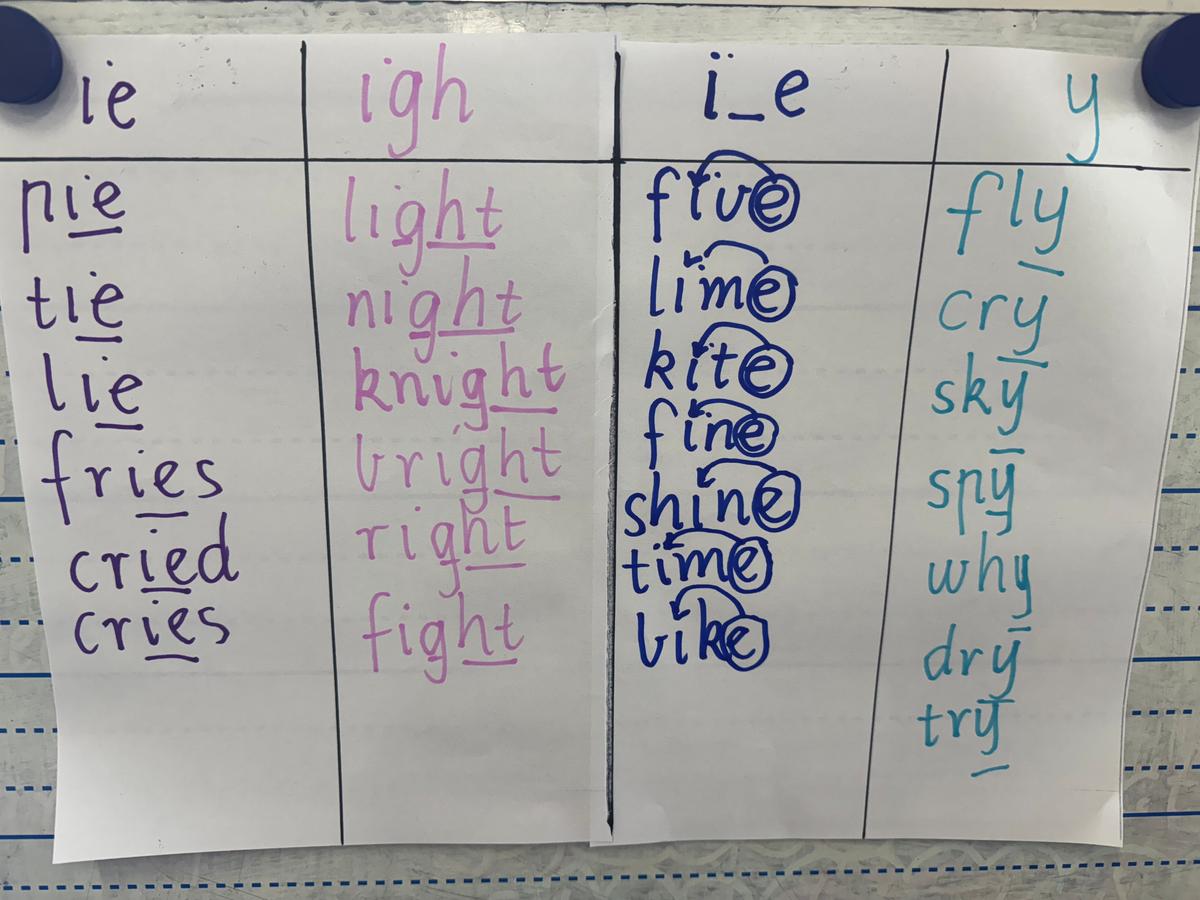 ie igh i_e y
pie light five fly
tie night lime cry
lie knight kite sky
fries bright fine spy
cried right shine why
cries fight time dry
bike try